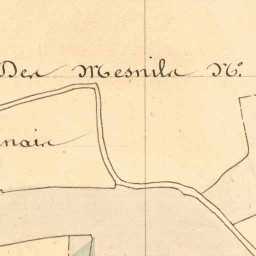 Des Mesnils N°.
naire